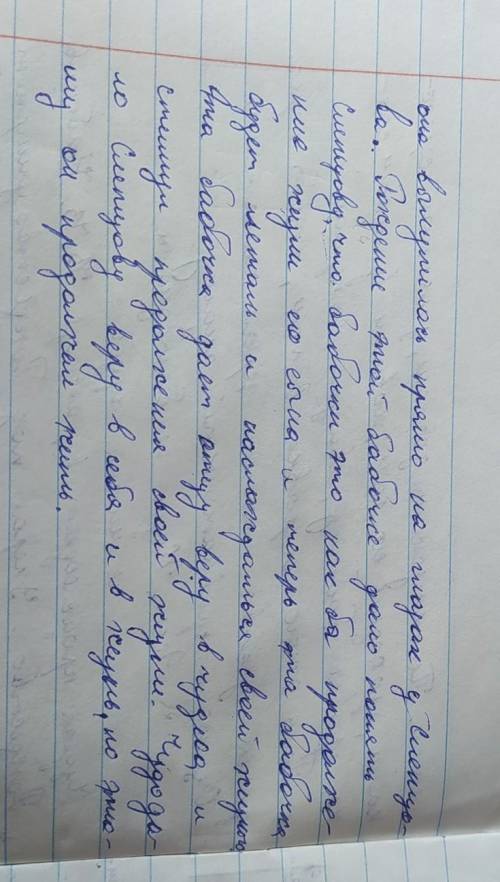 она вылупилась прямо на глазах у Слепцо-
ва. Рождение этой бабочке дало понять
Слепцову, что бабочки это как бы продолже-
ние жизни его сына и теперь эта бабочка
будет летать и наслаждаться своей жизнью
Эта бабочка дает отцу веру в чудеса и
стимул продолжения своей жизни. Чудо да-
ло Слепцову веру в себя и в жизнь, по это-
му он продолжил жить.